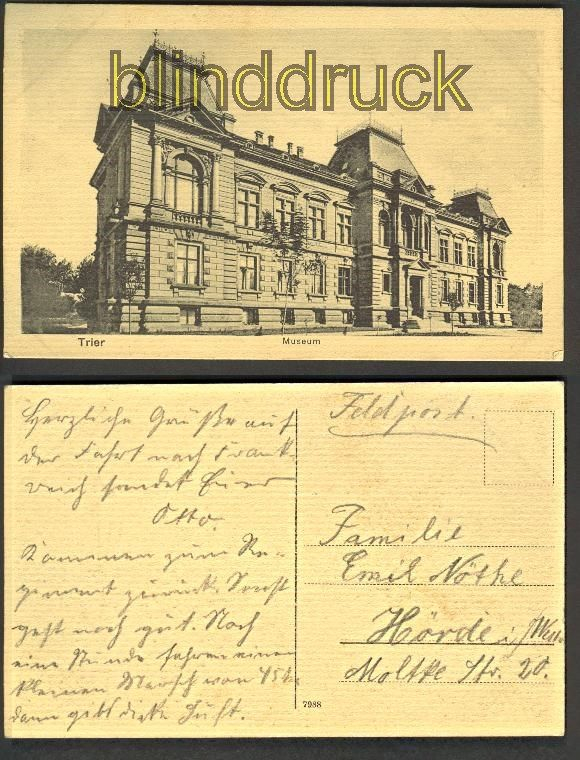 blinddruck
Trier
Museum
Herzliche Grüße auf
der Fahrt nach Frank-
reich sendet Euer
Otto.
Kommen zum Re-
giment zurück. Sonst
geht noch gut. Noch
eine Stunde fahren einen
kleinen Marsch von
dann gibt dicke Luft.
Feldpost.
Familie
Emil Nöthe
Hörde i/ Westf.
Moltke Str. 20.
7988